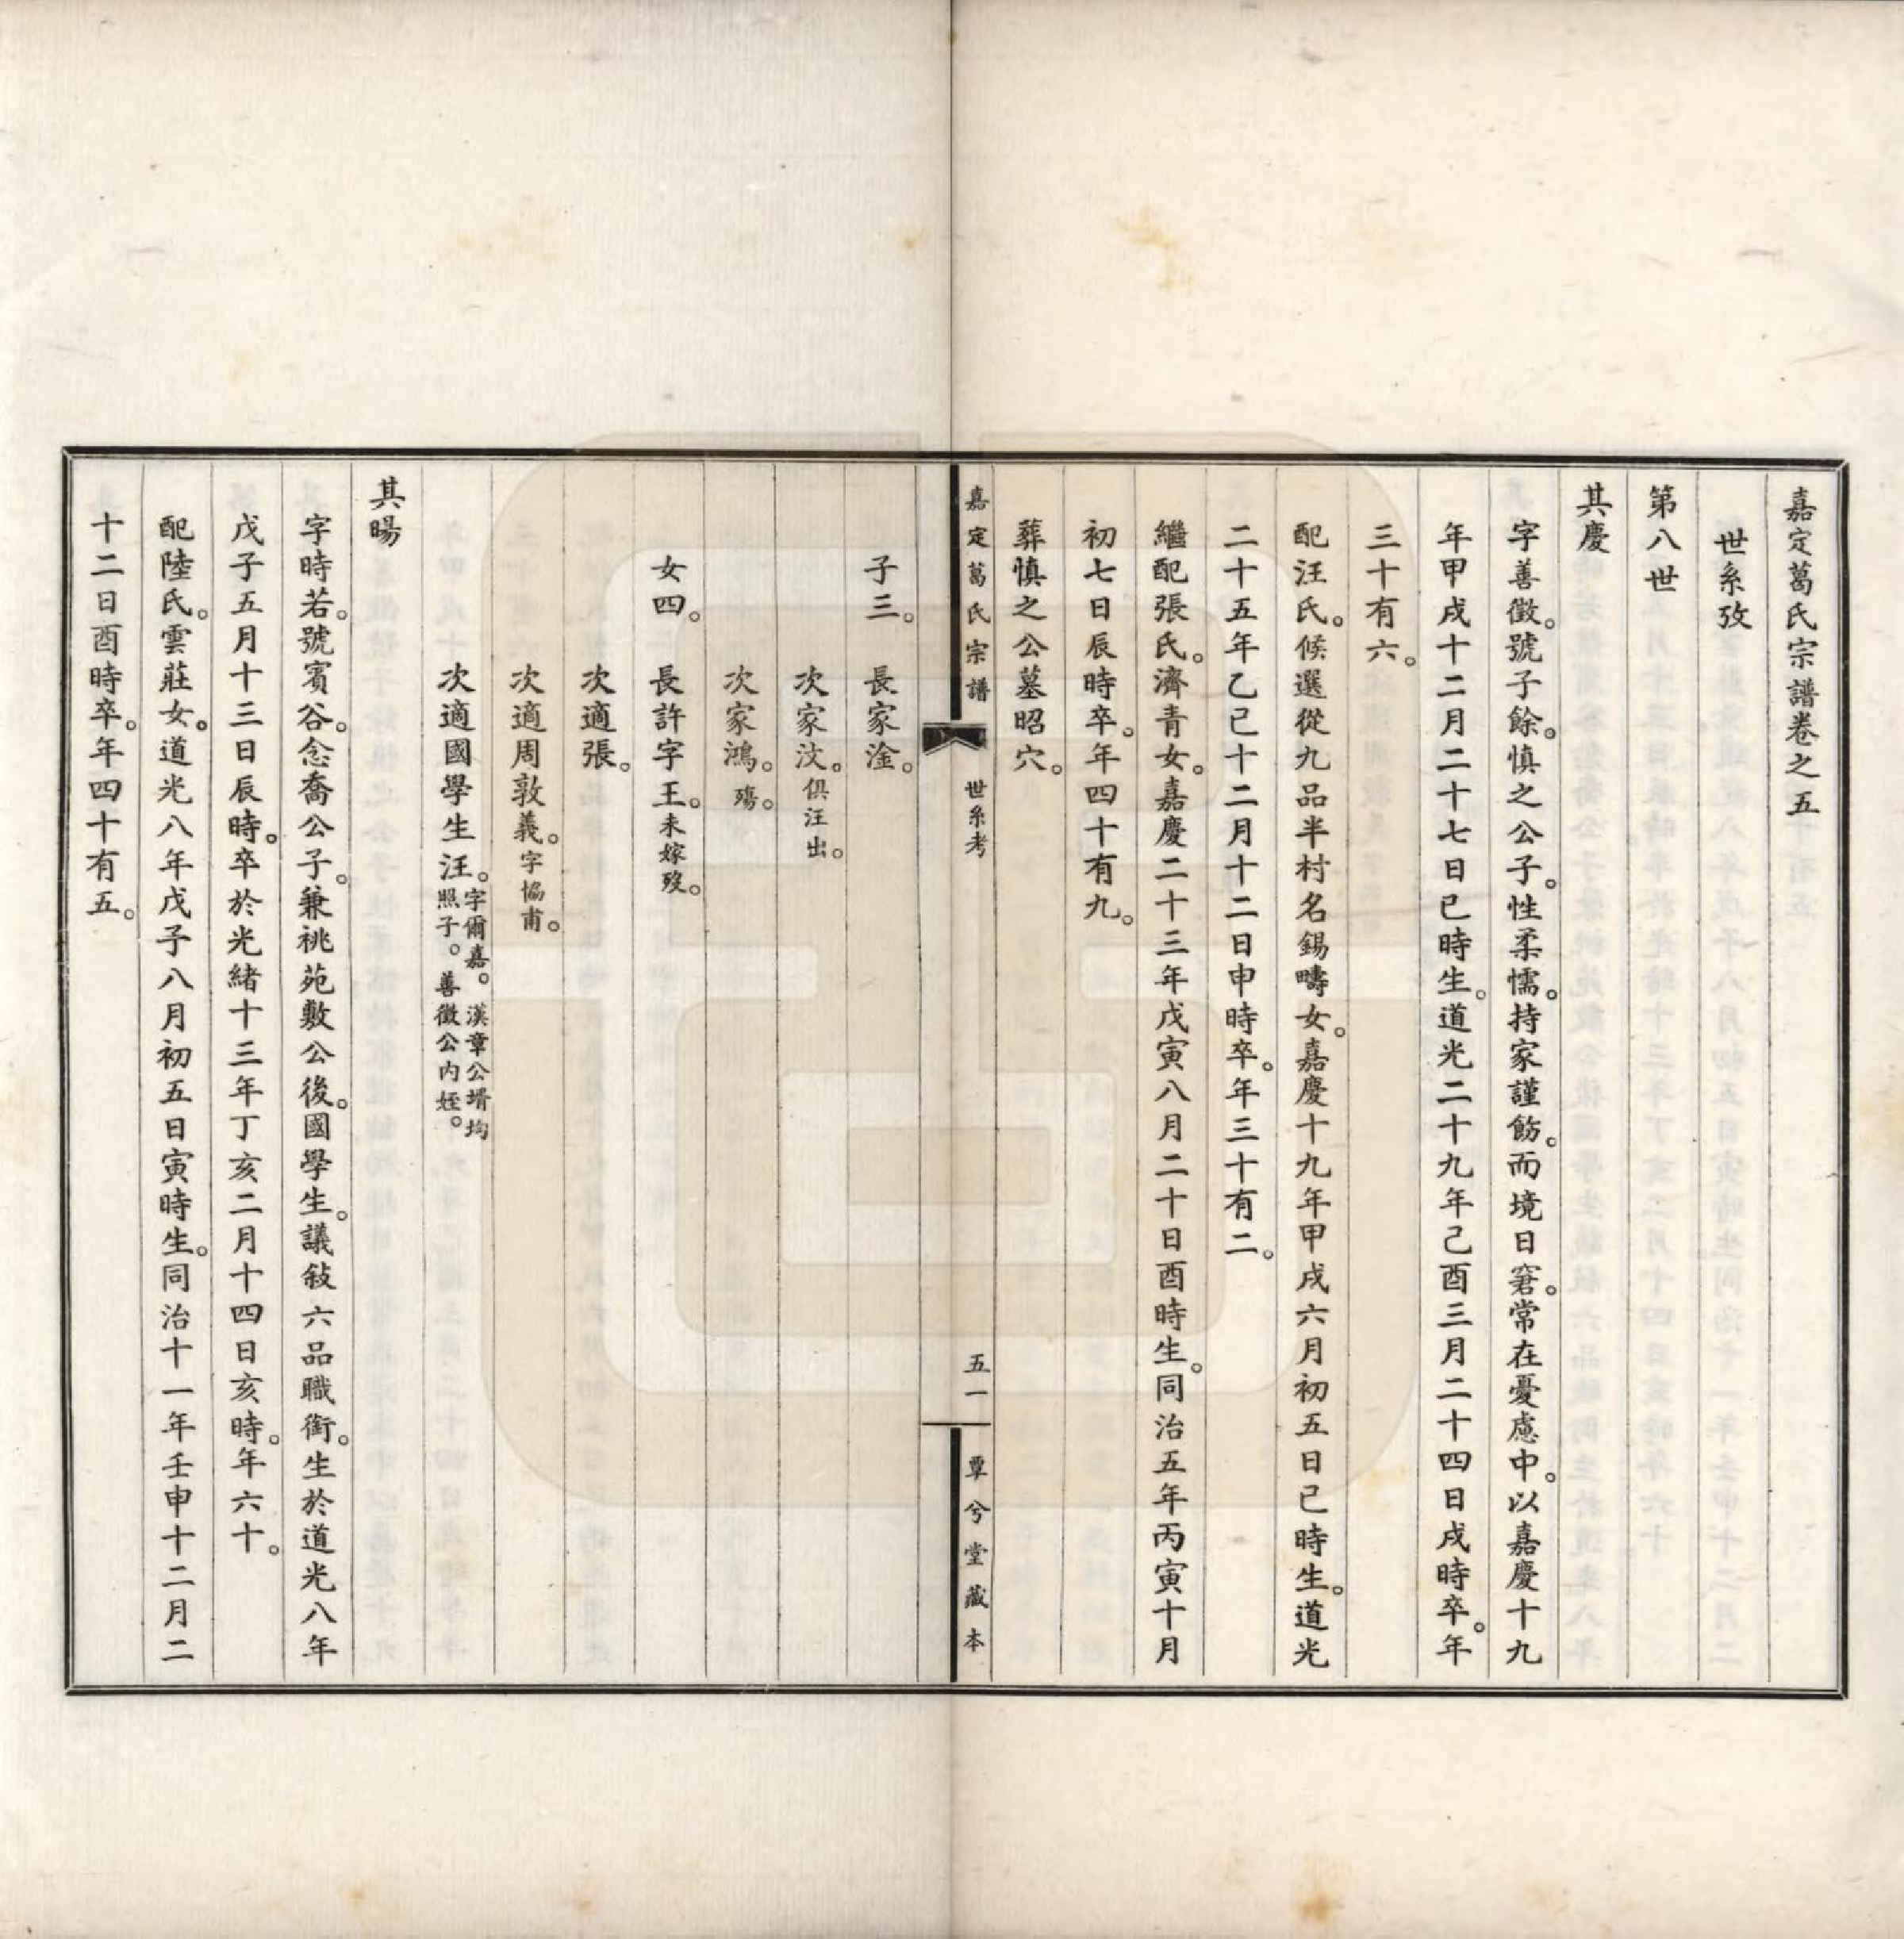 嘉定葛氏宗譜卷之五
世系攷
第八世
其慶
字善徵。號子餘。慎之公子。性柔懦。持家謹飭。而境日窘。常在憂慮中。以嘉慶十九
年甲戌十二月二十七日巳時生。道光二十九年己酉三月二十四日戌時卒。年
三十有六。
配汪氏。候選從九品半村名錫疇女。嘉慶十九年甲戌六月初五日巳時生。道光
二十五年乙巳十二月十二日申時卒。年三十有二。
繼配張氏。濟青女。嘉慶二十三年戊寅八月二十日酉時生。同治五年丙寅十月
初七日辰時卒。年四十有九。
葬慎之公墓昭穴。
嘉定葛氏宗譜 世系考 五一 覃兮堂藏本
子三。 長家淦。
次家汶。俱汪出。
次家鴻。殤。
女四。 長許字王。未嫁歿。
次適張。
次適周敦義。字協甫。
次適國學生汪。字爾嘉。漢章公壻均
照子。善徵公內姪。
其暘
字時若。號賓谷。念喬公子。兼祧苑敷公後。國學生。議敍六品職銜。生於道光八年
戊子五月十三日辰時。卒於光緒十三年丁亥二月十四日亥時。年六十。
配陸氏。雲莊女。道光八年戊子八月初五日寅時生。同治十一年壬申十二月二
十二日酉時卒。年四十有五。